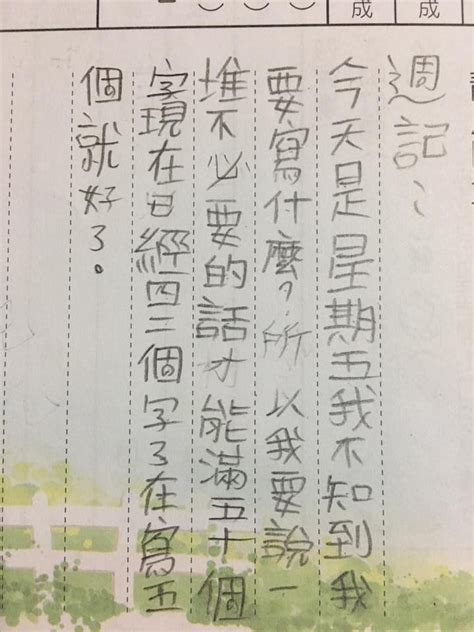 成
成
週記：
今天是星期五我不知到我
要寫什麼？所以我要說一
堆不必要的話才能滿五十個
字現在已經四二個字了在寫五
個就好了。